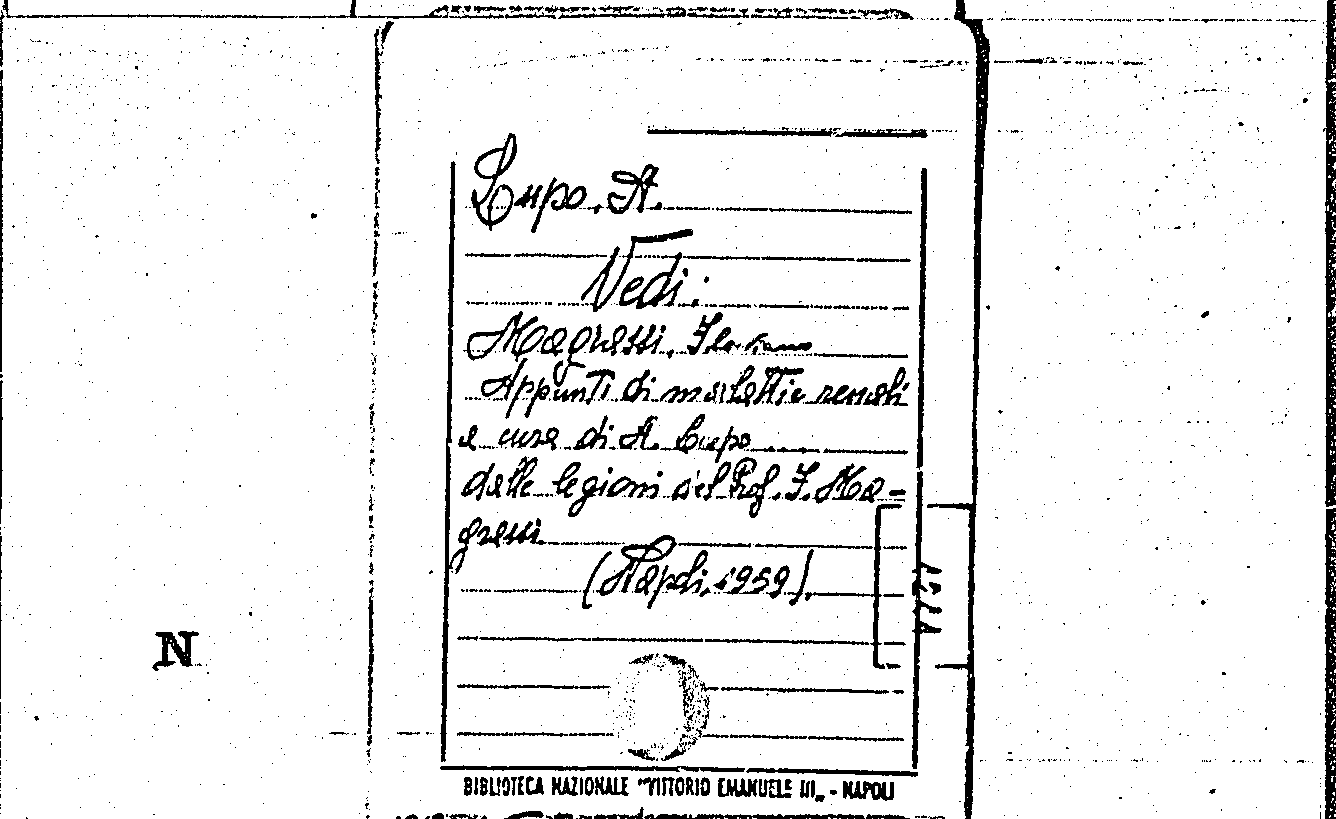 Lupo. A.
Vedi:
Magrassi, Flaviano
Appunti di malattie renali
a cura di A. Lupo
dalle lezioni del Prof. F. Ma-
grassi
(Napoli, 1959).
N
BIBLIOTECA NAZIONALE "VITTORIO EMANUELE III„ - NAPOLI